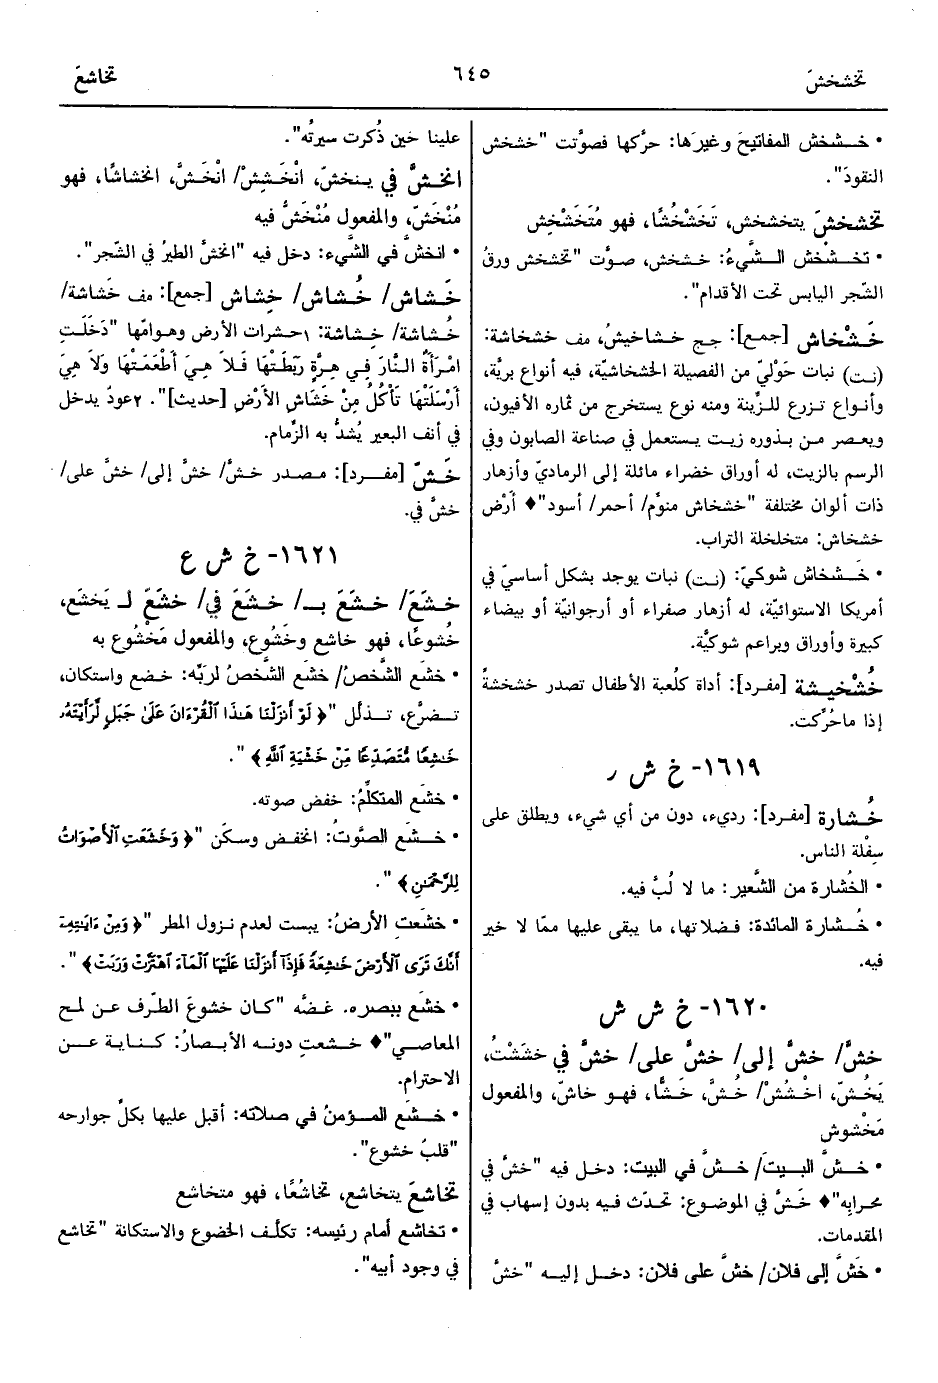 تخشخشَ
٦٤٥
تخاشعَ
• خـشـخش المفاتيحَ وغيرَها: حرَّكها فصوَّتت "خشخش
النقودَ".
تخشخشَ يتخشخش، تَخَشْخُشًا، فهو مُتَخَشْخِش
• تخـشْخش الـشَّيءُ: خـشخش، صوَّت "تخشخش ورقُ
الشّجر اليابس تحت الأقدام".
خَـشْخاش [جمع]: جج خـشاخيشُ، مف خشخاشة:
(نت) نبات حَوْليّ من الفصيلة الخشخاشيّة، فيه أنواع بريَّة،
وأنـواع تـزرع للـزّينة ومنه نوع يستخرج من ثماره الأفيون،
ويعصر مـن بـذوره زيـت يـستعمل في صناعة الصابون وفي
الرسم بالزيت، له أوراق خضراء مائلة إلى الرماديّ وأزهار
ذات ألوان مختلفة "خشخاش منوِّم/ أحمر/ أسود"♦ أرْض
خشخاش: متخلخلة التراب.
• خَـشخاش شوكيّ: (نـت) نبات يوجد بشكل أساسيّ في
أمريكا الاستوائيّة، له أزهار صفراء أو أرجوانيّة أو بيضاء
كبيرة وأوراق وبراعم شوكيَّة.
خُشْخيـشة [مفـرد]: أداة كلُعبة الأطفال تصدر خشخشةً
إذا ماحُرِّكت.
١٦١٩- خ ش ر
خُـشارة [مفـرد]: رديء، دون من أي شيء، ويطلق على
سِفْلة الناس.
• الخُشارة من الشَّعير: ما لا لُبَّ فيه.
• خُـشارة المائدة: فـضلاتها، ما يبقى عليها ممّا لا خير
فيه.
١٦٢٠- خ ش ش
خشَّ/ خشَّ إلى/ خشَّ على/ خشَّ في خشَشْتُ،
يَخُـشّ، اخْشُشْ/ خُـشَّ، خَـشًّا، فهـو خاشّ، والمفعول
مَخْشوش
• خـشَّ البـيتَ/ خـشَّ في البيت: دخـل فيه "خشَّ في
محرابِه"♦ خَشَّ في الموضوع: تحدّث فـيه بدون إسهاب في
المقدمات.
• خَشَّ إلى فلان/ خشَّ على فلان: دخـل إليـه "خشَّ
علينا حين ذُكرت سيرتُه".
انخشَّ في ينخشّ، انْخَشِشْ/ انْخَشَّ، انخشاشًا، فهو
مُنْخَشّ، والمفعول مُنْخَشٌّ فيه
• انخشَّ في الشَّيء: دخل فيه "انخشَّ الطيرُ في الشّجر".
خَـشاش/ خُـشاش/ خِشاش [جمع]: مف خَشاشة/
خُـشاشة/ خِـشاشة: ١حشرات الأرض وهـوامّها "دَخَلَتِ
امْرَأَةٌ النَّارَ فِـي هِرَّةٍ رَبَطَتْهَا فَـلاَ هِـيَ أَطْعَمَتْهَا وَلاَ هِيَ
أَرْسَلَتْهَا تَأْكُلُ مِنْ خَشَاشِ الأَرْضِ [حديث]". ٢عودٌ يدخل
في أنف البعير يُشدُّ به الزِّمام.
خَـشّ [مفـرد]: مـصدر خـشَّ/ خشَّ إلى/ خشَّ على/
خشَّ في.
١٦٢١- خ ش ع
خـشَعَ/ خـشَعَ بـ/ خـشَعَ في/ خشَعَ لـ يَخشَع،
خُشوعًا، فهو خاشع وخَشُوع، والمفعول مَخْشُوع به
• خشَع الشَّخصُ/ خشَع الشَّخصُ لربِّه: خـضع واستكان،
تـضرَّع، تـذلّل "﴿ لَوْ أَنزَلْنَا هَـٰذَا ٱلْقُرْءَانَ عَلَىٰ جَبَلٍ لَّرَأَيْتَهُۥ
خَـٰشِعًا مُّتَصَدِّعًا مِّنْ خَشْيَةِ ٱللَّهِ ﴾ ".
• خشَع المتكلِّمُ: خفض صوته.
• خـشَع الصَّوتُ: انخفـض وسـكَن "﴿ وَخَشَعَتِ ٱلْأَصْوَاتُ
لِلرَّحْمَـٰنِ ﴾ ".
• خشَعتِ الأرضُ: يبست لعدم نـزول المطر "﴿ وَمِنْ ءَايَـٰتِهِۦٓ
أَنَّكَ تَرَى ٱلْأَرْضَ خَـٰشِعَةً فَإِذَآ أَنزَلْنَا عَلَيْهَا ٱلْمَآءَ ٱهْتَزَّتْ وَرَبَتْ ﴾ ".
• خشَع ببصره. غـضَّه "كـان خشوعَ الطّرف عـن لمح
المعاصـي"♦ خـشعتِ دونـه الأبـصارُ: كـنايـة عـن
الاحترام.
• خـشَع المـؤمنُ في صلاته: أقبل عليها بكلّ جوارحه
"قلبٌ خشوع".
تخاشعَ يتخاشع، تخاشُعًا، فهو متخاشع
• تخاشع أمام رئيسه: تكلَّف الخضوع والاستكانة "تخاشع
في وجود أبيه".